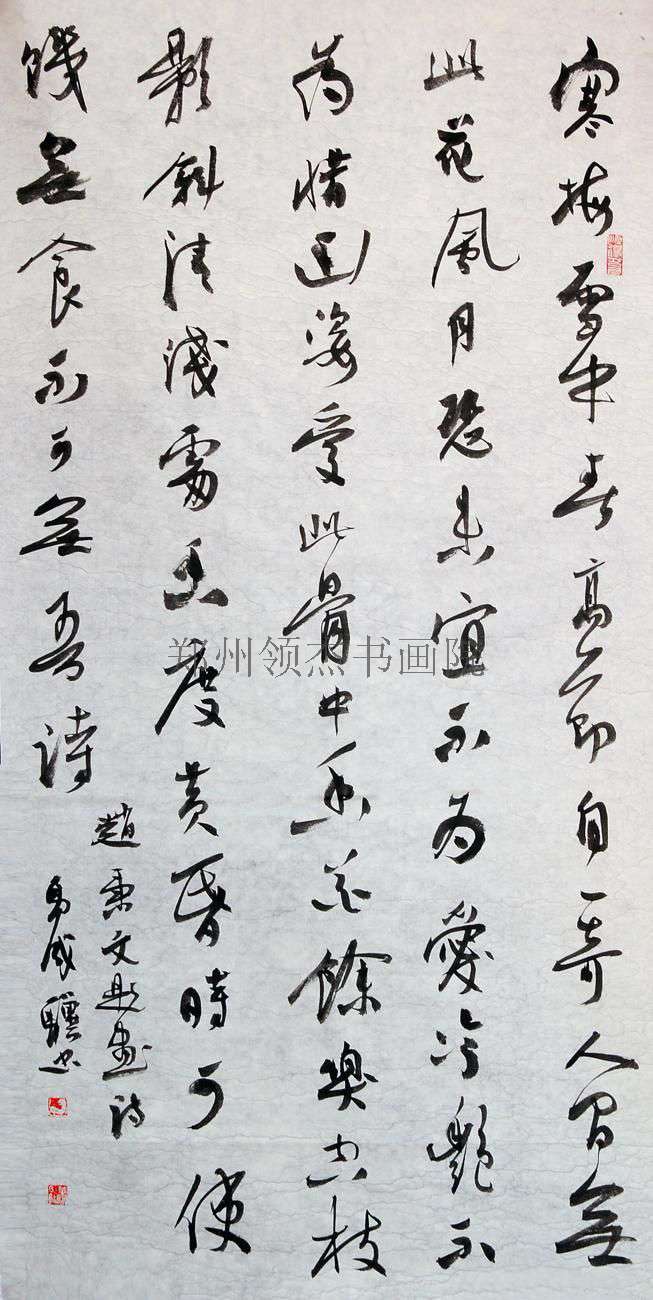 寒梅雪中春高節自一奇人間無
此花風月恐未宜不為愛冷艷不
為惜幽姿愛此骨中香花餘嗅空枝
影斜清淺處香度黃昏時可使
饑無食不可無吾詩
趙秉文題畫詩
郑州领杰书画院